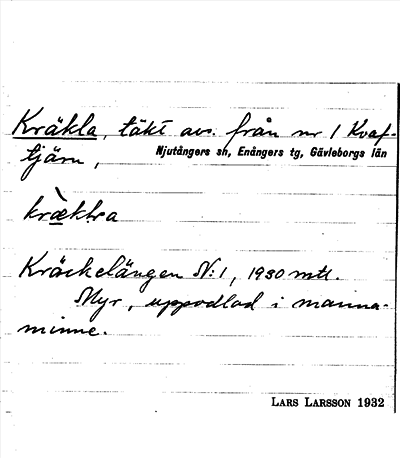 Kräkla, täkt avs. från nr 1 Kvaf-
tjärn,
Njutångers sn, Enångers tg, Gävleborgs län
kræ̀kḷra
Kräckelängen N:1, 1930 mtl.
Myr, uppodlad i manna-
minne.
LARS LARSSON 1932